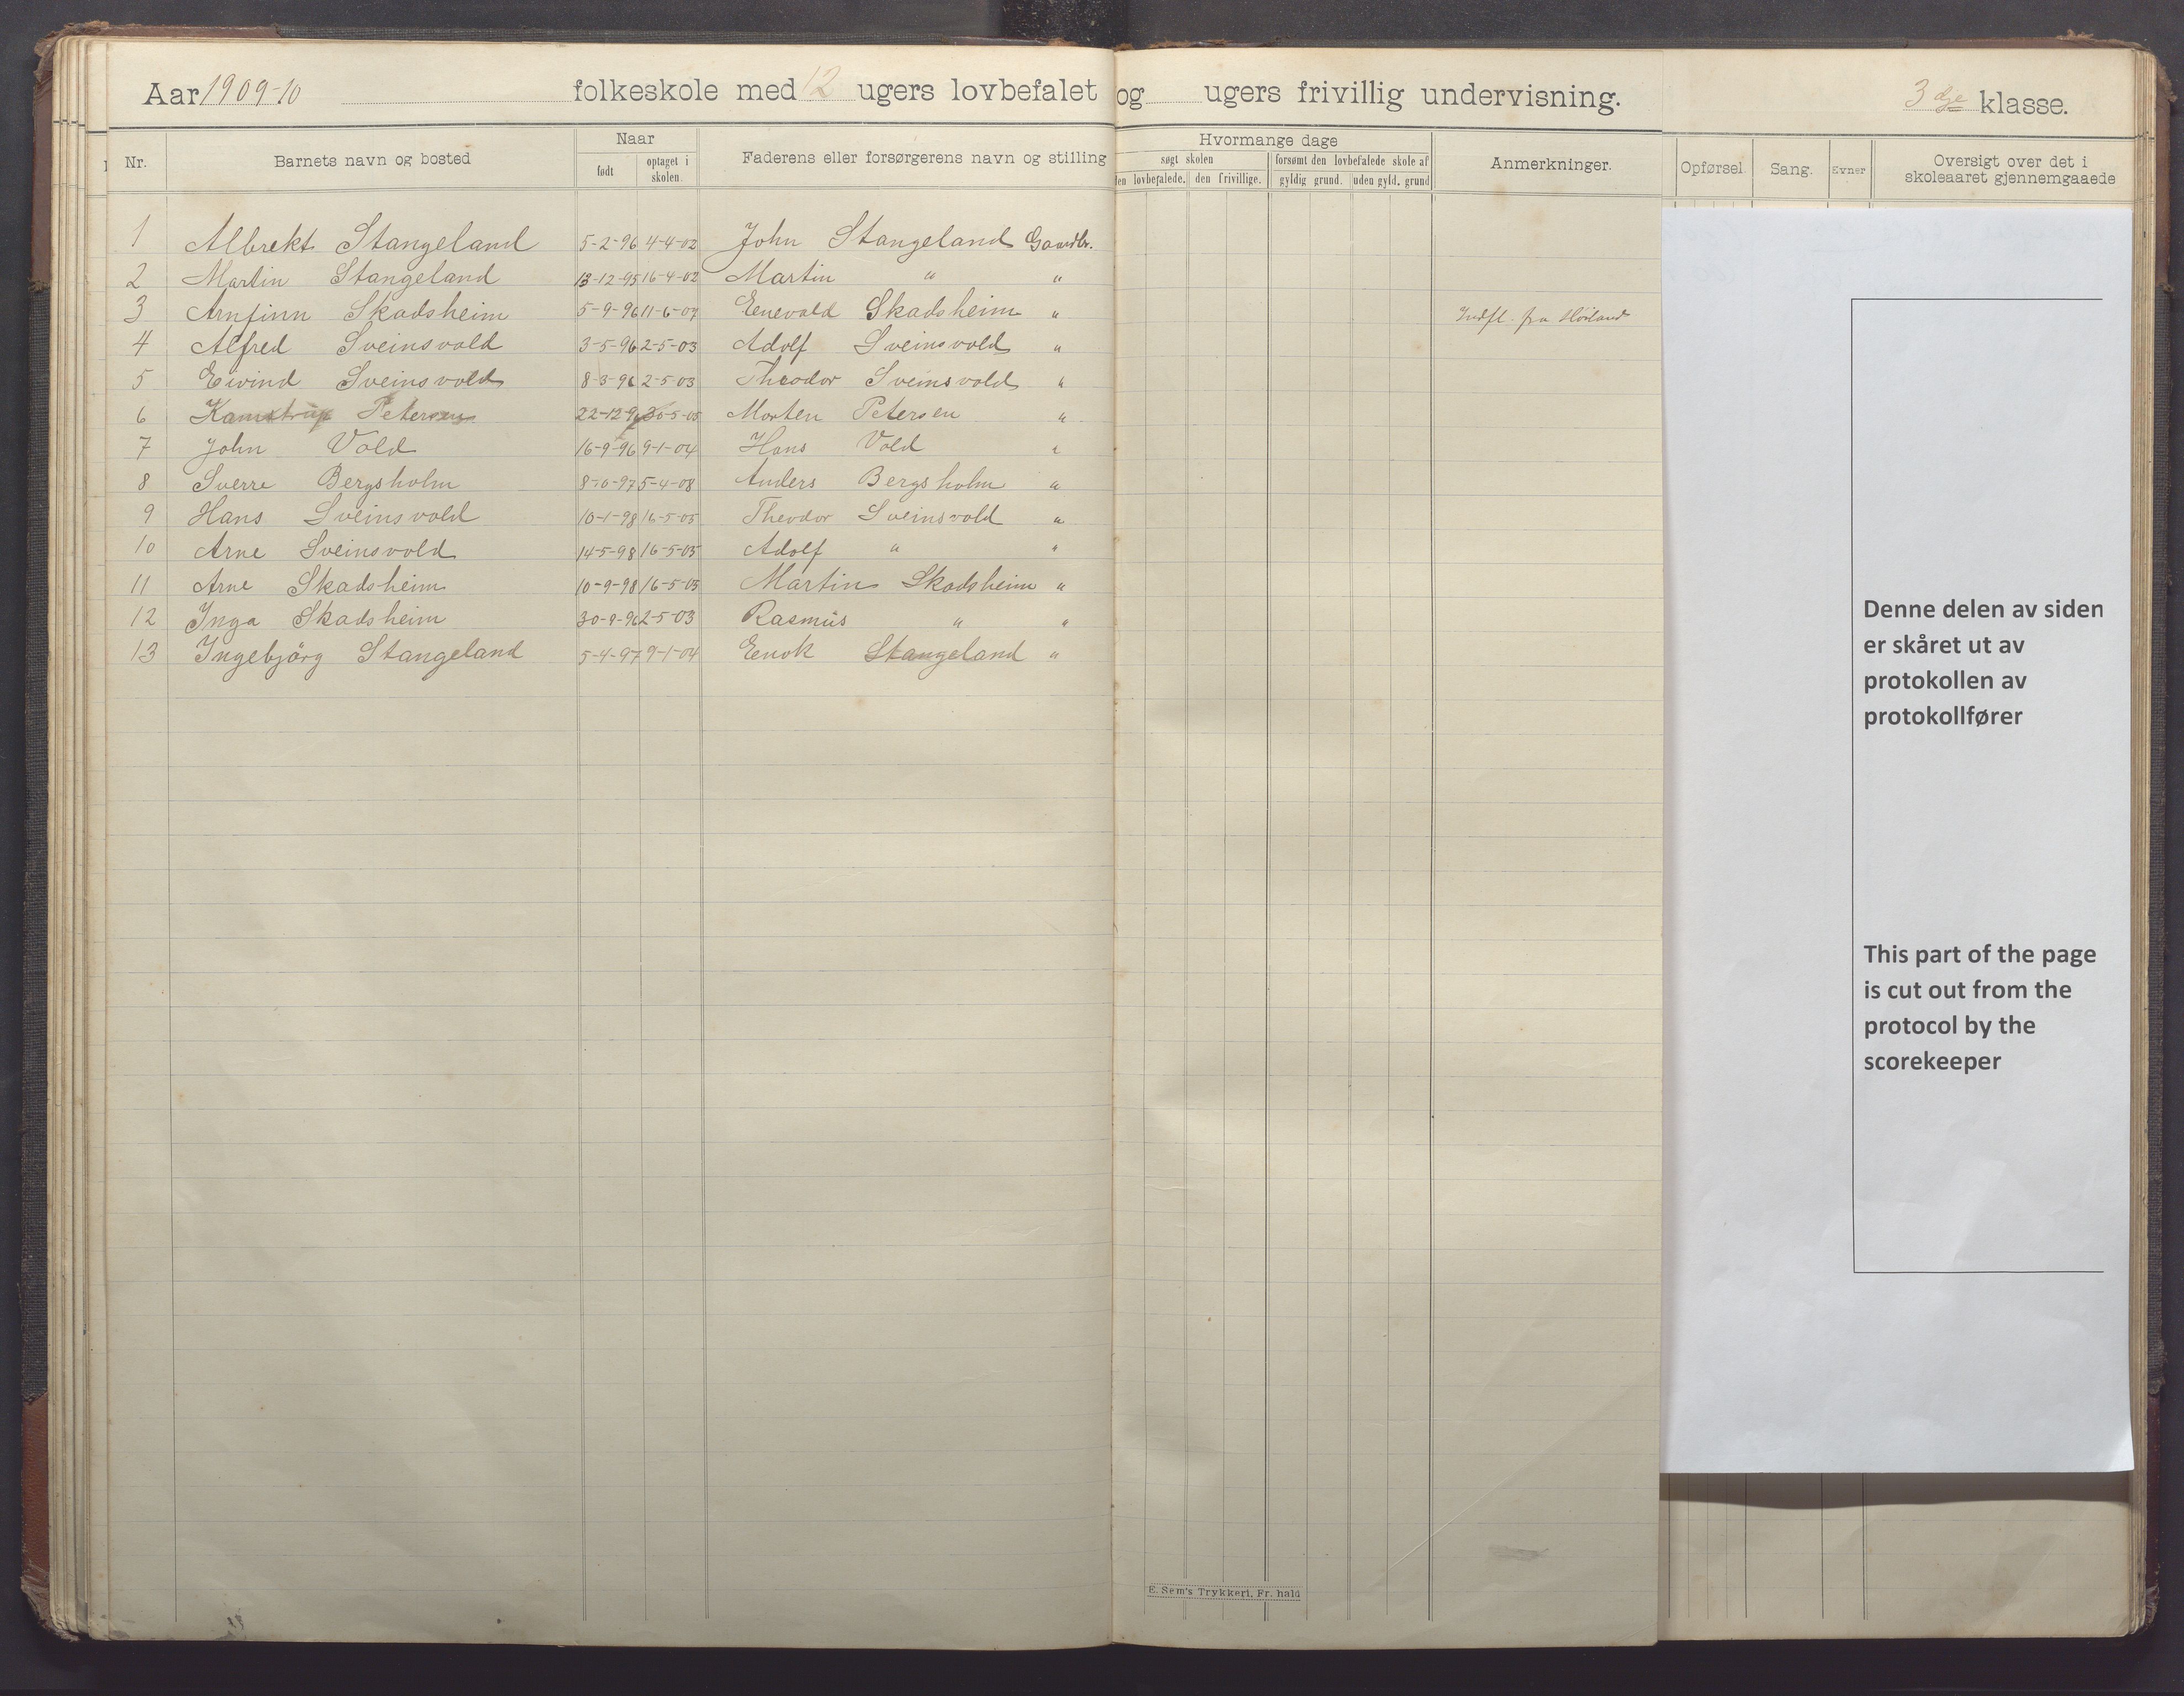 Aar 1909-10 folkeskole med 12 ugers lovbefalet og ugers frivillig undervisning. 3dje klasse.
Nr. Barnets navn og bosted Naar født optaget i skolen. Faderens eller forsørgerens navn og stilling Hvormange dage søgt skolen forsømt den lovbefalede skole af Anmerkninger. Opførsel. Sang. Evner Oversigt over det i skoleaaret gjennemgaaede
den lovbefalede. den frivillige. gyldig grund. uden gyld. grund
1 Albrekt Stangeland 5-2-96 4-4-02 John Stangeland Gaardbr.
2 Martin Stangeland 13-12-95 16-4-02 Martin " "
3 Arnfinn Skadsheim 5-9-96 11-6-07 Enevald Skadsheim " Indfl. fra Høiland
4 Alfred Sveinsvold 3-5-96 2-5-03 Adolf Sveinsvold "
5 Eivind Sveinsvold 8-3-96 2-5-03 Theodor Sveinsvold "
6 Kamstrup Petersen 22-12-96 20-5-05 Morten Petersen "
7 John Vold 16-9-96 9-1-04 Hans Vold "
8 Sverre Bergsholm 8-10-97 5-4-08 Anders Bergsholm "
9 Hans Sveinsvold 10-1-98 16-5-05 Theodor Sveinsvold "
10 Arne Sveinsvold 14-5-98 16-5-05 Adolf " "
11 Arne Skadsheim 10-9-98 16-5-05 Martin Skadsheim "
12 Inga Skadsheim 30-9-96 2-5-03 Rasmus " "
13 Ingebjörg Stangeland 5-4-97 9-1-04 Enok Stangeland "
Denne delen av siden
er skåret ut av
protokollen av
protokollfører
This part of the page
is cut out from the
protocol by the
scorekeeper
E. Sem's Trykkeri, Fr. hald